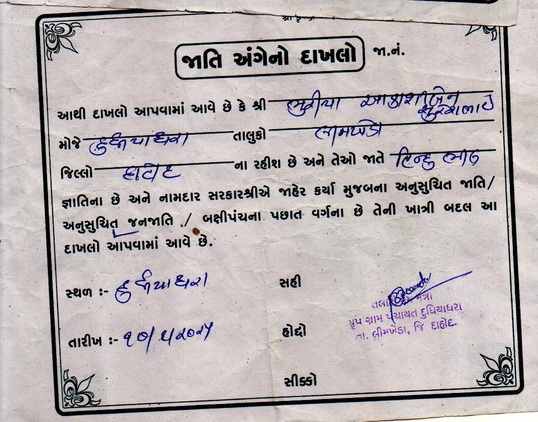 જાતિ અંગેનો દાખલો જા.નં.
આથી દાખલો આપવામાં આવે છે કે શ્રી
મોજે દુધિયાધરા તાલુકો લીમખેડા
જિલ્લો દાહોદ ના રહીશ છે અને તેઓ જાતે હિન્દુ ભીલ
જ્ઞાતિના છે અને નામદાર સરકારશ્રીએ જાહેર કર્યા મુજબના અનુસુચિત જાતિ/
અનુસુચિત જનજાતિ / બક્ષીપંચના પછાત વર્ગના છે તેની ખાત્રી બદલ આ
દાખલો આપવામાં આવે છે.
સ્થળ :- દુધિયાધરા સહી
તલાટી કમ મંત્રી
તારીખ :- હોદ્દો
ગ્રુપ ગ્રામ પંચાયત દુધિયાધરા
તા. લીમખેડા, જિ દાહોદ
સીક્કો